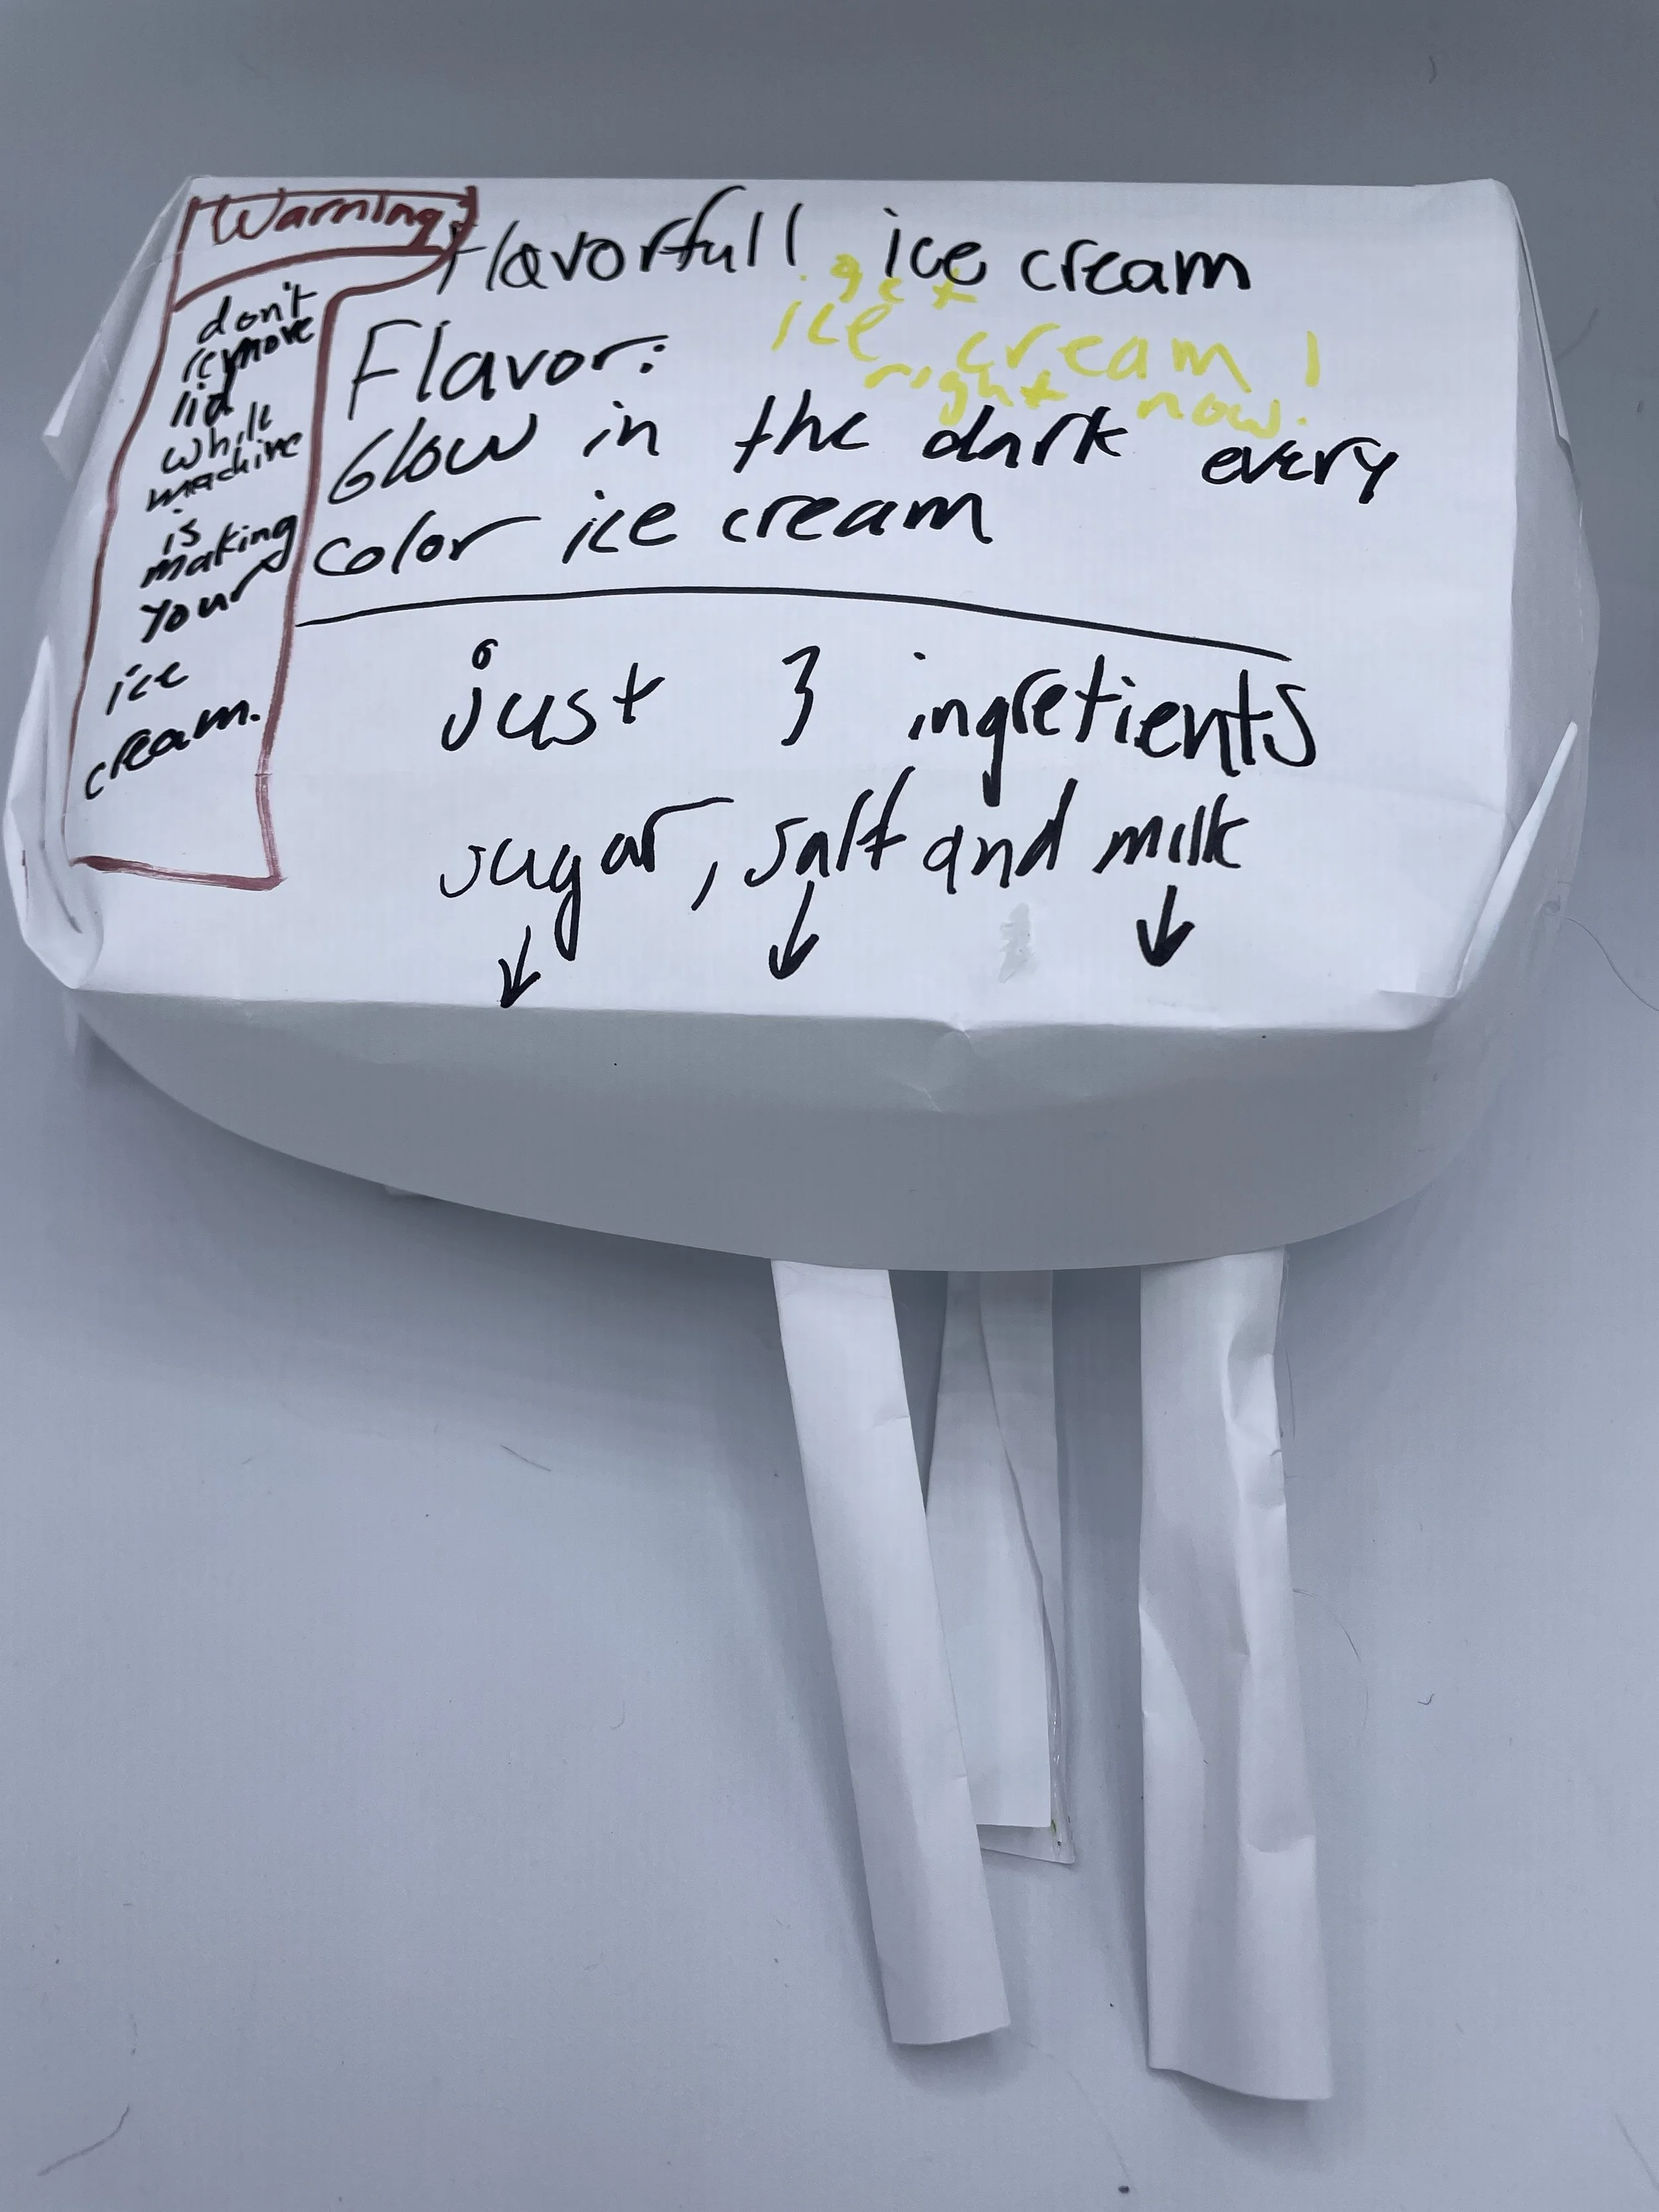 Warning
don't
remove
lid
while
machine
is
making
your
ice
cream.
Flavorfull ice cream
get
ice cream!
right now.
Flavor:
Glow in the dark every
color ice cream
just 3 ingretients
sugar, salt and milk